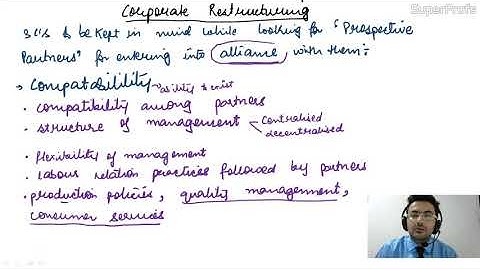 SuperProfs
Corporate Restructuring
3 C's to be kept in mind while looking for "Prospective
Partners" for entering into alliance, with them:
Compatability → ability to exist
• compatibility among partners
• structure of management < centralised
decentralised
• flexibility of management
• labour relation practices followed by partners
• production policies, quality management,
consumer services